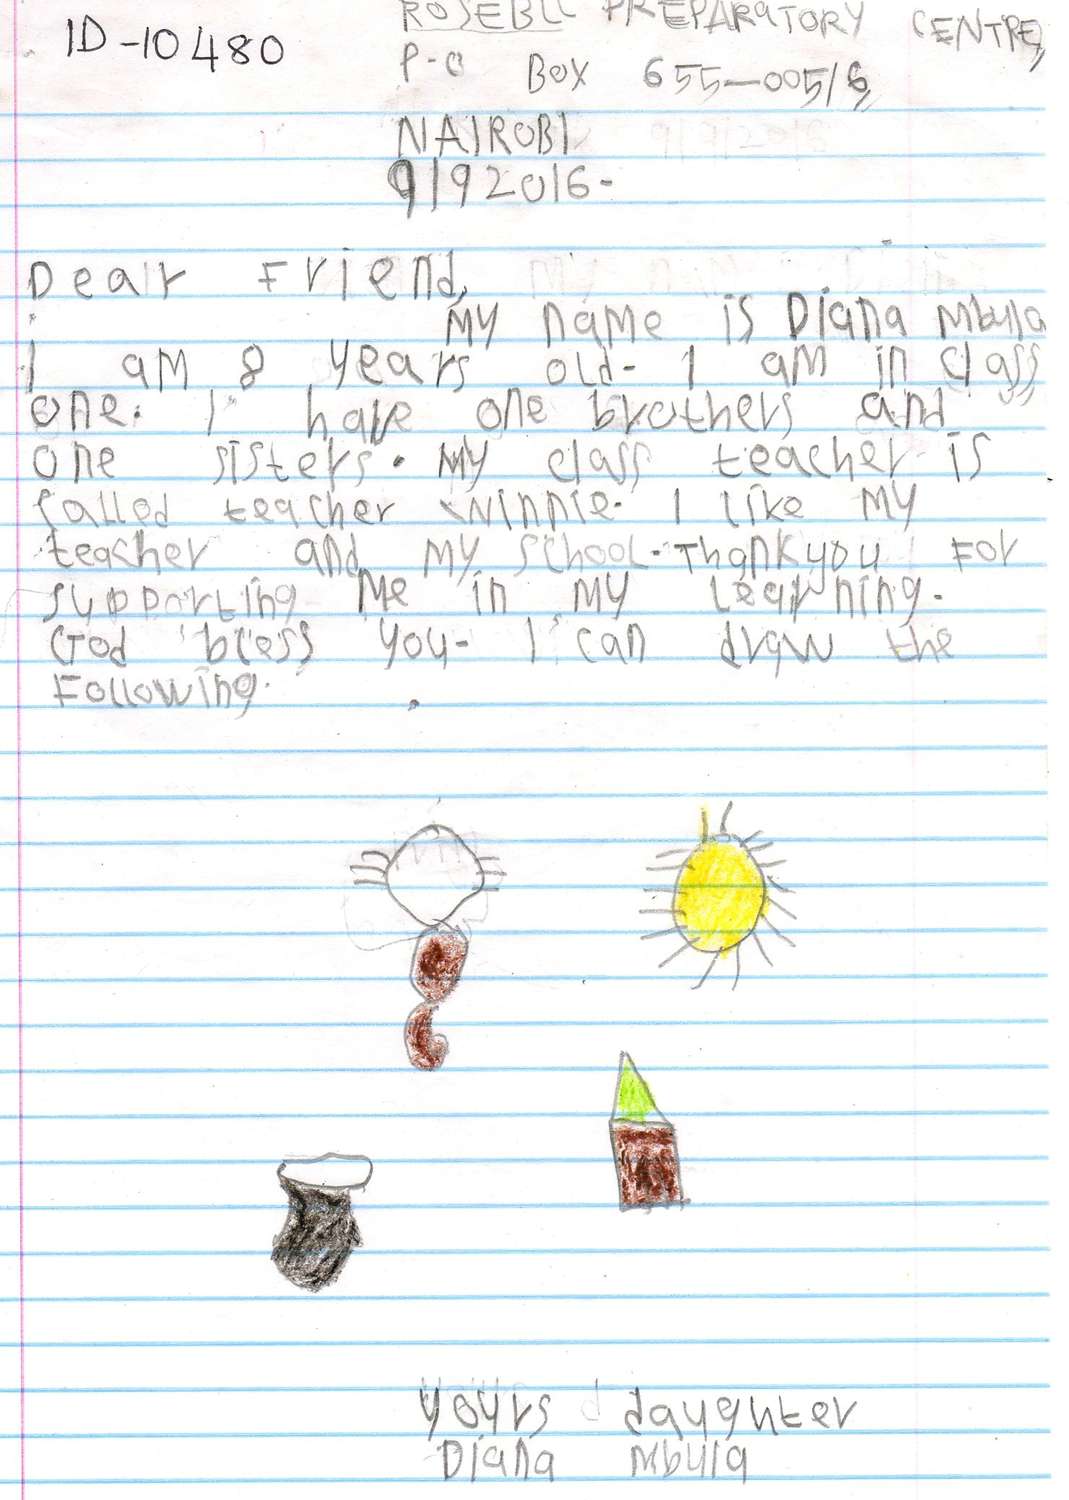 ID-10480
ROSEBLL PREPARATORY CENTRE,
P-O BOX 655-00516,
NAIROBI
9192016-
Dear Friend,
My name is Diana Mbula
I am 8 years old- I am in class
one. I have one brothers and
one sisters. My class teacher is
called teacher winnie. I like my
teacher and my school. Thankyou For
supporting Me in my learning.
God bless you- I can draw the
Following.
yours daughter
Diana Mbula